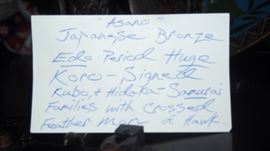 "Asano"
Japanese Bronze
Edo Period Huge
Koro - Signed
Kubo, + Hidaka - Samurai
Families with Crossed
Feather Mon of Hawk.